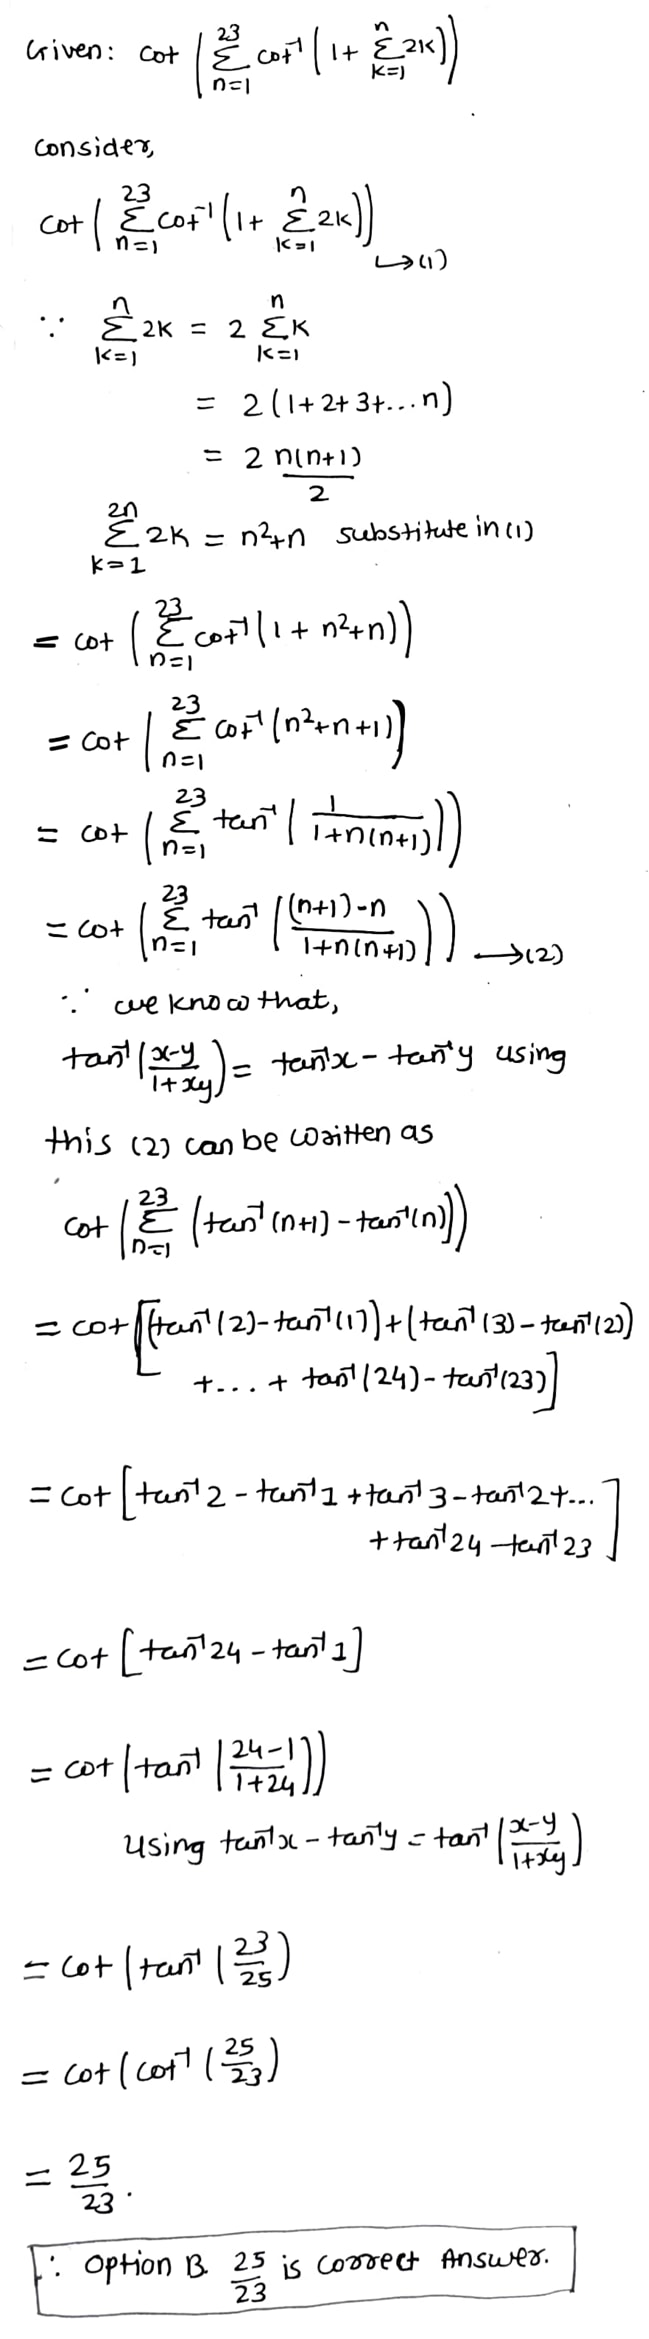 Given: cot (∑_{n=1}^{23} cot⁻¹ (1 + ∑_{k=1}^{n} 2k))
consider,
cot (∑_{n=1}^{23} cot⁻¹ (1 + ∑_{k=1}^{n} 2k)) ↳(1)
∵ ∑_{k=1}^{n} 2k = 2 ∑_{k=1}^{n} k
= 2 (1+2+3+...n)
= 2 n(n+1)/2
∑_{k=1}^{2n} 2k = n²+n substitute in (1)
= cot (∑_{n=1}^{23} cot⁻¹ (1 + n²+n))
= cot (∑_{n=1}^{23} cot⁻¹ (n²+n+1))
= cot (∑_{n=1}^{23} tan⁻¹ (1/(1+n(n+1))))
= cot (∑_{n=1}^{23} tan⁻¹ (((n+1)-n)/(1+n(n+1)))) →(2)
∵ we know that,
tan⁻¹ ((x-y)/(1+xy)) = tan⁻¹x - tan⁻¹y using
this (2) can be written as
cot (∑_{n=1}^{23} (tan⁻¹ (n+1) - tan⁻¹(n)))
= cot [(tan⁻¹(2) - tan⁻¹(1)) + (tan⁻¹(3) - tan⁻¹(2))
+... + tan⁻¹(24) - tan⁻¹(23)]
= cot [tan⁻¹2 - tan⁻¹1 + tan⁻¹3 - tan⁻¹2 + ...
+ tan⁻¹24 - tan⁻¹23]
= cot [tan⁻¹24 - tan⁻¹1]
= cot (tan⁻¹ ((24-1)/(1+24)))
Using tan⁻¹x - tan⁻¹y = tan⁻¹ ((x-y)/(1+xy))
= cot (tan⁻¹ (23/25)
= cot (cot⁻¹ (25/23)
= 25/23.
∴ Option B. 25/23 is correct Answer.